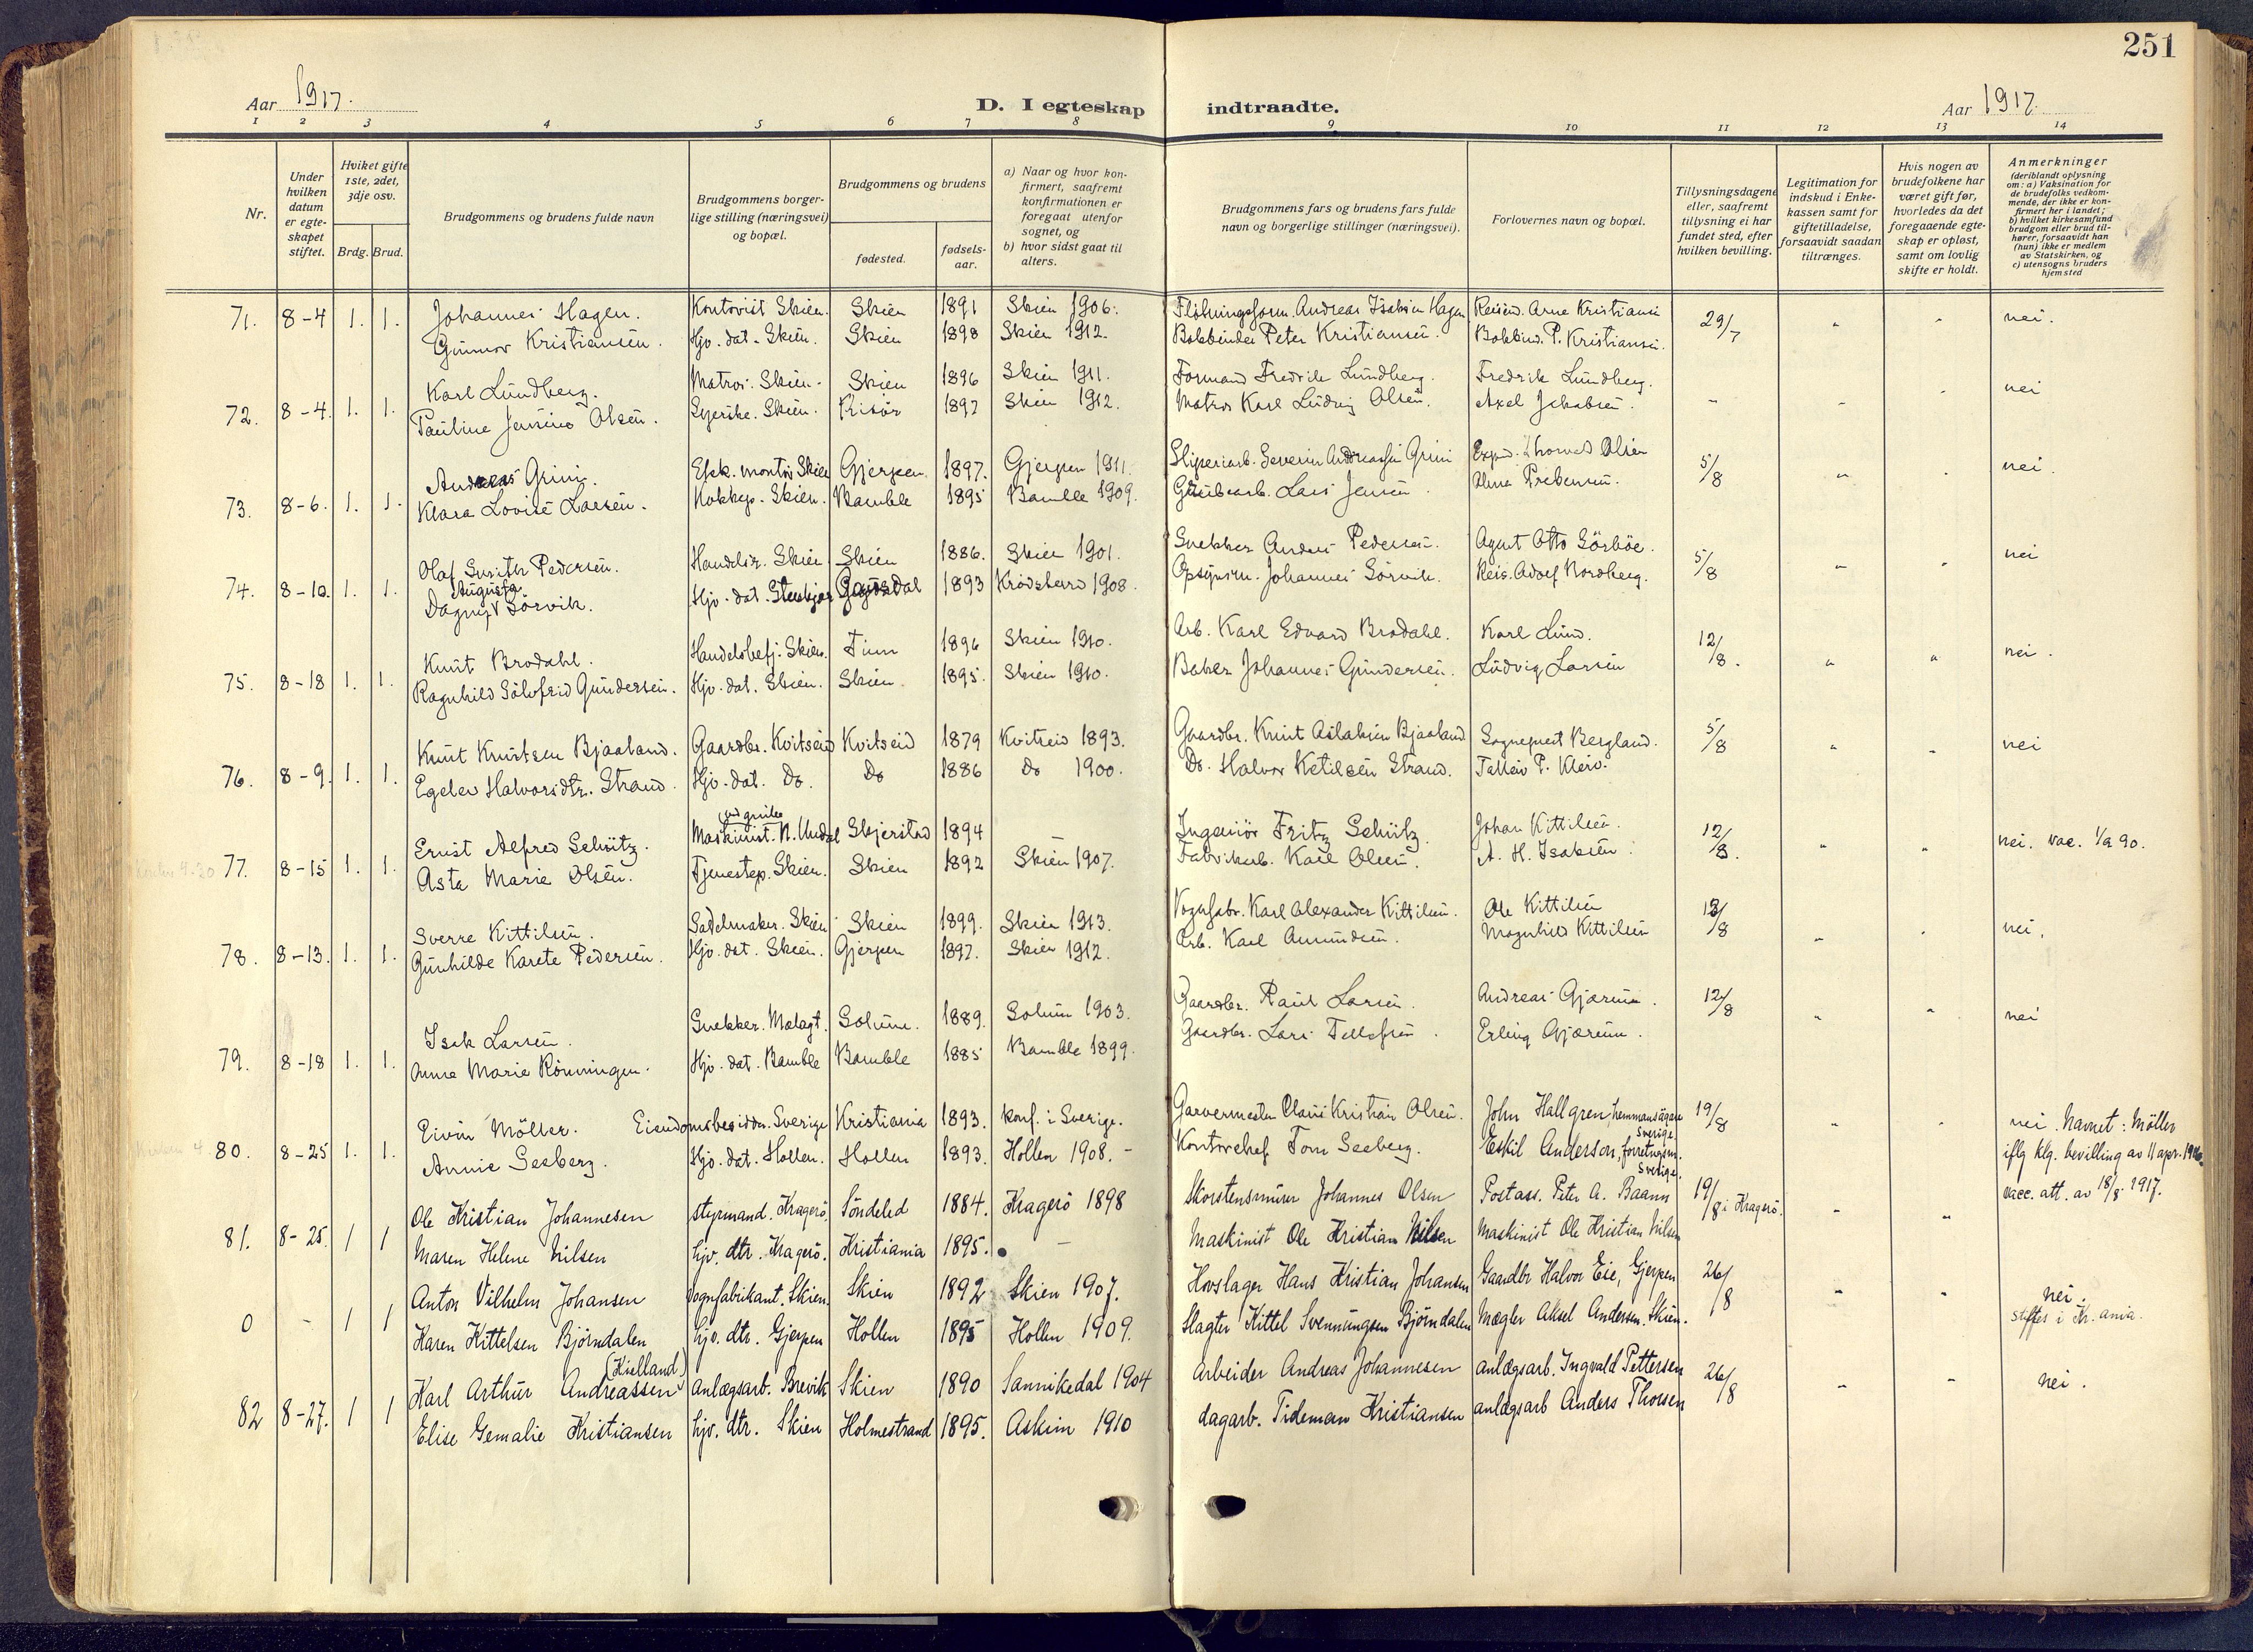 251
Aar 1917.
D. I egteskap indtraadte.
Aar 1917.
1 2 3 4 5 6 7 8 9 10 11 12 13 14
Nr.
Under hvilken datum er egteskapet stiftet.
Hviket gifte 1ste, 2det, 3dje osv.
Brdg. Brud.
Brudgommens og brudens fulde navn
Brudgommens borgerlige stilling (næringsvei) og bopæl.
Brudgommens og brudens
fødested.
fødselsaar.
a) Naar og hvor konfirmert, saafremt konfirmationen er foregaat utenfor sognet, og
b) hvor sidst gaat til alters.
Brudgommens fars og brudens fars fulde navn og borgerlige stillinger (næringsvei).
Forlovernes navn og bopæl.
Tillysningsdagene eller, saafremt tillysning ei har fundet sted, efter hvilken bevilling.
Legitimation for indskud i Enkekassen samt for giftetilladelse, forsaavidt saadan tiltrænges.
Hvis nogen av brudefolkene har været gift før, hvorledes da det foregaaende egteskap er opløst, samt om lovlig skifte er holdt.
Anmerkninger (deriblandt oplysning om: a) Vaksination for de brudefolks vedkommende, der ikke er konfirmert her i landet; b) hvilket kirkesamfund brudgom eller brud tilhører, forsaavidt han (hun) ikke er medlem av Statskirken, og c) utensogns bruders hjemsted
71. 8-4 1. 1. Johannes Hagen. Kontorist Skien. Skien 1891 Skien 1906. Andreas Isaksen Hagen Reisend. Arne Kristiansen 29/7 " " nei.
Gunvor Kristiansen. Hjv. dat. Skien. Skien 1898 Skien 1912. Bokbinder Peter Kristiansen. Bokbind. P. Kristiansen.
72. 8-4. 1. 1. Karl Lundberg. Matros. Skien. Skien 1896 Skien 1911. Formand Fredrik Lundberg. Fredrik Lundberg. " " " nei
Pauline Jensine Olsen. Syerske. Skien. Risør 1897 Skien 1912. Matros Karl Ludvig Olsen. Axel Jakobsen.
73. 8-6. 1. 1. Andreas Grini. Elek. montør Skien Gjerpen 1897. Gjerpen 1911. Sliperiarb. Severin Andreassen Grini Exped. Thorvald Olsen 5/8 " " nei.
Klara Lovise Larsen. Kokkep. Skien. Bamble 1895 Bamble 1909. Grubearb. Lars Jensen Alma Prebensen.
74. 8-10. 1. 1. Olaf Pedersen. Handelsr. Skien. Skien 1886. Skien 1901. Snekker Anders Pedersen. Agent Otto Sörböe. 5/8 " " nei
Dagny Augusta Sörvik. Hjv. dat. Stenkjær 1893 Krødsherd 1908. Opsynsm. Johannes Sörvik. Reis. Adolf Nordberg.
75. 8-18 1. 1. Knut Brodahl. Handelsbetj. Skien. Tinn 1896 Skien 1910. Arb. Karl Edvard Brodahl. Karl Lund. 12/8. " " nei.
Ragnhild Sölvfrid Gundersen. Hjv. dat. Skien. Skien. 1895. Skien 1910. Baker Johannes Gundersen. Ludvig Larsen
76. 8-9. 1. 1. Knut Knutsen Bjaaland. Gaardbr. Kvitseid Kvitseid 1879 Kvitseid 1893. Gaardbr. Knut Aslaksen Bjaaland. Sogneprest Bergland. 5/8 " " nei
Egelev Halvorsdtr. Strand. Hjv. dat. Do. Do 1886 do 1900. Do. Halvor Ketilsen Strand. Talleiv P. Kleiv.
77. 8-15 1. 1. Ernst Alfred Schütz. Maskinist. Skjerstad 1894 — Ingeniør Fritz Schütz. Johan Kittilsen. 12/8. " " nei.
Asta Marie Olsen. Tjenestep. Skien. Skien 1892 Skien 1907. Fabrikarb. Karl Olsen. A. H. Isaksen.
78. 8-13. 1. 1. Sverre Kittilsen. Sadelmaker. Skien Skien 1899. Skien 1913. Vognfabr. Karl Alexander Kittilsen. Ole Kittilsen 12/8 " " nei.
Gunhilde Karete Pedersen. Hjv. dat. Skien. Gjerpen 1897. Skien 1912. Arb. Karl Amundsen. Magnhild Kittilsen
79. 8-18 1. 1. Isak Larsen. Snekker. Mælagt. Solum. 1889. Solum 1903. Gaardbr. Paul Larsen. Andreas Gjærum. 12/8 " " nei
Anne Marie Rönningen. Hjv. dat. Bamble Bamble 1885 Bamble 1899. Gaardbr. Lars Tellefsen. Erling Gjærum.
80. 8-25 1. 1. Eivin Möller. Eiendomsbesidder. Sverige Kristiania 1893. Konf. i Sverige. Garvermester Claus Kristian Olsen. John Hallgren, hemmansägare Sverige. 19/8 " " nei. Navnet: Möller
Annie Seeberg. Hjv. dat. Hollen. Hollen 1893. Hollen 1908. Kontorchef Tom Seeberg. Eskil Anderson, forretningsm. Sverige. iflg klg. bevilling av 11 apr. 1916.
vacc. att. av 18/8. 1917.
81. 8-25. 1 1 Ole Kristian Johannesen styrmand. Kragerö. Söndeled 1884. Kragerö 1898 Skorstensmurer Johannes Olsen Postass. Peter A. Baann 19/8 i Kragerö. " "
Maren Helene Nilsen hjv. dtr. Kragerö. Kristiania 1895. — Maskinist Ole Kristian Nilsen Maskinist Ole Kristian Nilsen
0 - 1 1 Anton Vilhelm Johansen vognfabrikant. Skien. Skien 1892 Skien 1907. Hovslager Hans Kristian Johansen Gaardbr Halvor Eie, Gjerpen 26/8 " " nei.
Karen Kittelsen Björndalen hjv. dtr. Gjerpen Hollen 1895 Hollen 1909. Slagter Kittel Svennungsen Björndalen Mægler Aksel Andersen. Skien. stiftes i Kr.ania.
82 8-27. 1 1 Karl Arthur Andreassen (Kielland) anlægsarb. Brevik Skien 1890 Sannikedal 1904 Arbeider Andreas Johannesen anlægsarb. Ingvald Pettersen 26/8 " " nei.
Elise Gemalie Kristiansen hjv. dtr. Skien Holmestrand 1895. Askim 1910 dagarb. Tideman Kristiansen anlægsarb Anders Thorsen